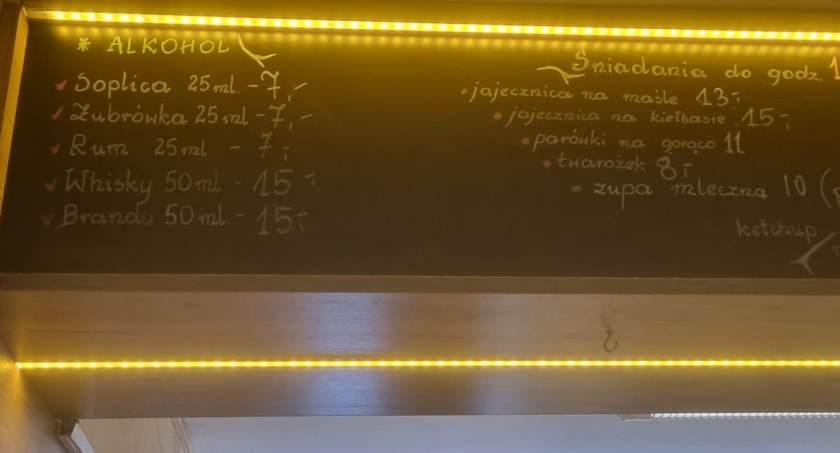 * ALKOHOL
Soplica 25ml. - 7,-
Żubrówka 25ml - 7,-
Rum 25ml - 7,-
Whisky 50ml - 15,-
Brandy 50ml - 15,-
Śniadania do godz. 1
• jajecznica na maśle 13,-
• jajecznica na kiełbasie 15,-
• parówki na gorąco 11
• twarożek 8,-
• zupa mleczna 10 (
ketchup